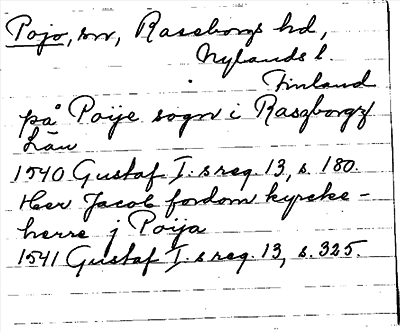 Pojo, sn, Raseborgs hd,
Nylands l.
Finland
på Poije sogn i Rasзborgz
Län
1540 Gustaf I:s reg. 13, s. 180.
Her Jacob fordom kyrcke-
herre j Poija
1541 Gustaf I:s reg. 13, s. 325.